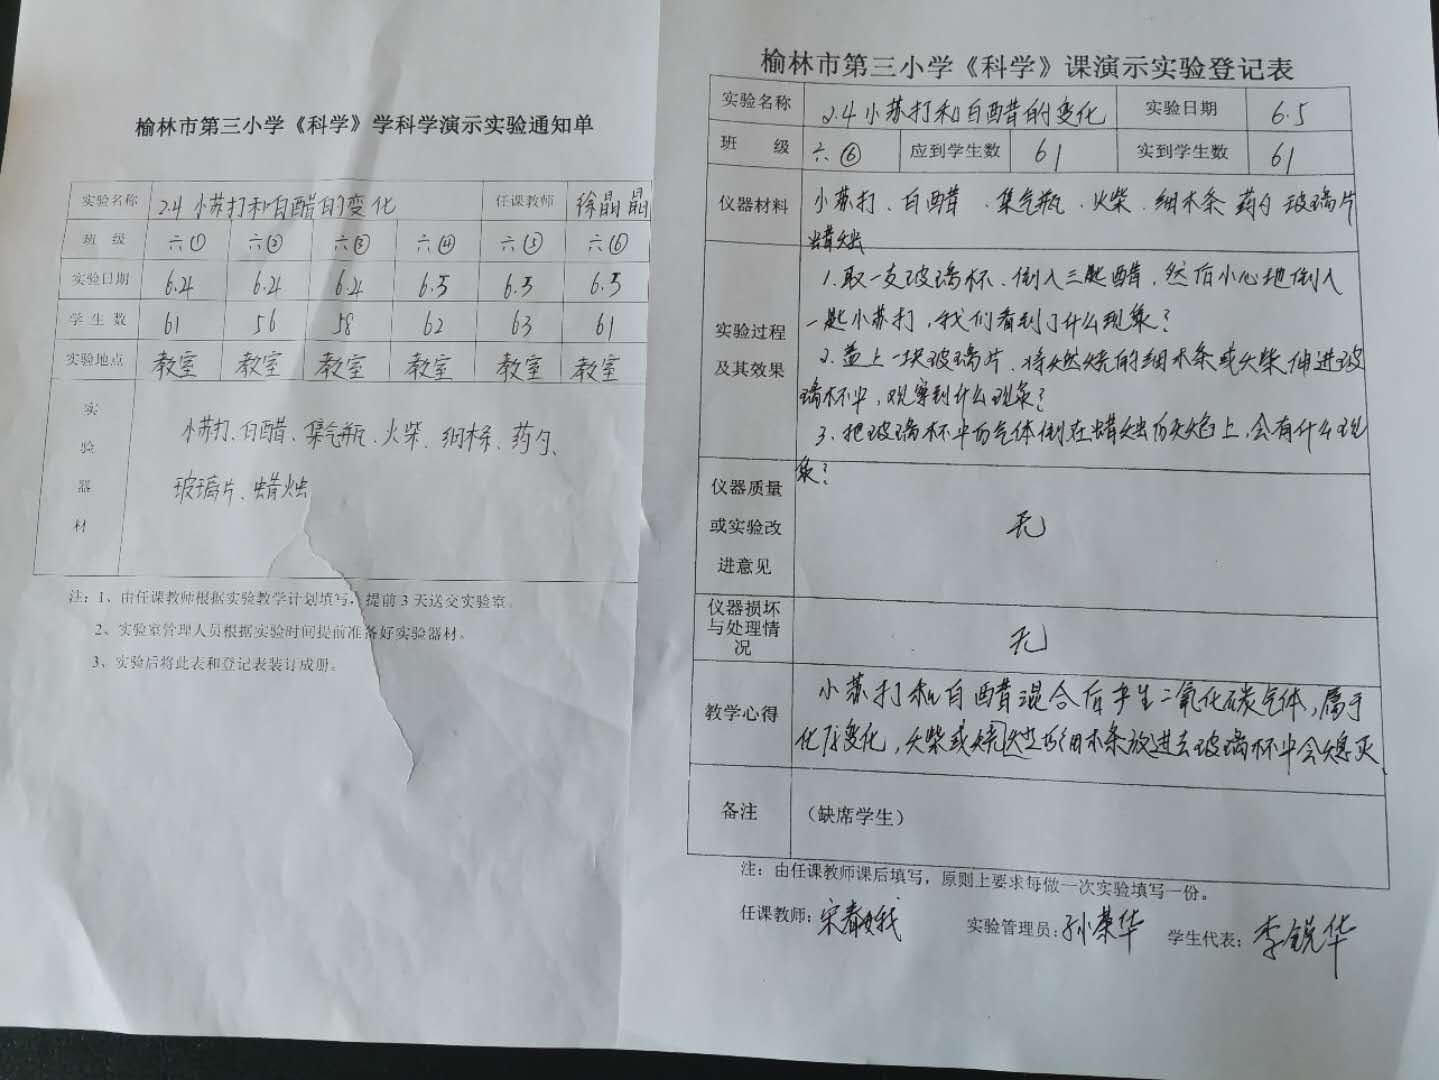 榆林市第三小学《科学》学科学演示实验通知单
实验名称 2.4 小苏打和白醋的变化 任课教师 徐晶晶
班 级 六① 六② 六③ 六④ 六⑤ 六⑥
实验日期 6.4 6.4 6.4 6.5 6.5 6.5
学 生 数 61 56 58 62 63 61
实验地点 教室 教室 教室 教室 教室 教室
实验器材
小苏打、白醋、集气瓶、火柴、细木条、药勺、
玻璃片、蜡烛
注：1、由任课教师根据实验教学计划填写，提前 3 天送交实验室。
2、实验室管理人员根据实验时间提前准备好实验器材。
3、实验后将此表和登记表装订成册。
榆林市第三小学《科学》课演示实验登记表
实验名称 2.4 小苏打和白醋的变化 实验日期 6.5
班 级 六⑥ 应到学生数 61 实到学生数 61
仪器材料 小苏打、白醋、集气瓶、火柴、细木条 药勺 玻璃片
蜡烛
实验过程
及其效果
1.取一支玻璃杯、倒入三匙醋，然后小心地倒入
一匙小苏打，我们看到了什么现象？
2.盖上一块玻璃片、将燃烧的细木条或火柴伸进玻
璃杯中，观察到什么现象？
3.把玻璃杯中的气体倒在蜡烛的火焰上，会有什么现
象？
仪器质量
或实验改
进意见
无
仪器损坏
与处理情
况
无
教学心得
小苏打和白醋混合后产生二氧化碳气体，属于
化学变化，火柴或燃烧的细木条放进去玻璃杯中会熄灭
备注 （缺席学生）
注：由任课教师课后填写，原则上要求每做一次实验填写一份。
任课教师：宋春娥 实验管理员：孙荣华 学生代表：李锐华